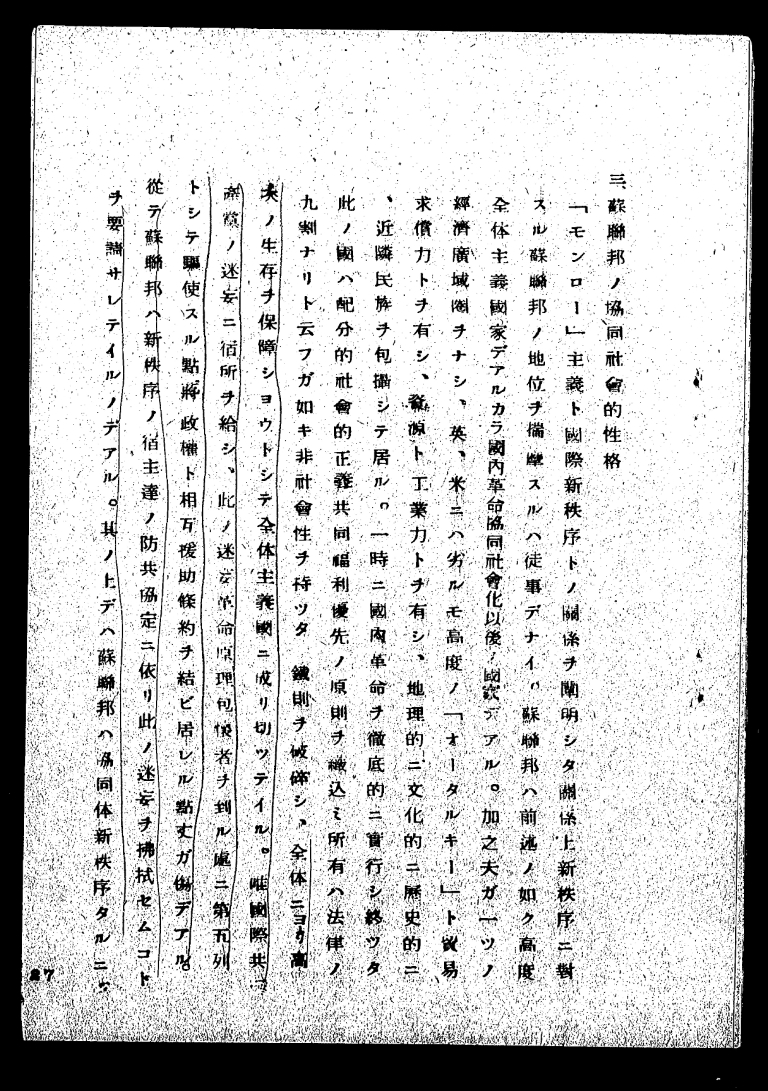 三、蘇聯邦ノ協同社會的性格
「モンロー」主義ト國際新秩序トノ關係ヲ闡明シタ關係上新秩序ニ對
スル蘇聯邦ノ地位ヲ揣摩スルハ徒事デナイ。蘇聯邦ハ前述ノ如ク高度
全体主義國家デアルカラ國內革命協同社會化以後ノ國家デアル。加之夫ガ一ツノ
經濟廣域圈ヲナシ、英、米ニハ劣ルモ高度ノ「オータルキー」ト貿易
求償力トヲ有シ、資源ト工業力トヲ有シ、地理的ニ文化的ニ歷史的ニ
、近隣民族ヲ包攝シテ居ル。一時ニ國內革命ヲ徹底的ニ實行シ終ツタ
此ノ國ハ配分的社會的正義共同福利優先ノ原則ヲ織込ミ所有ハ法律ノ
九割ナリト云フガ如キ非社會性ヲ持ツタ 鐵則ヲ破碎シ、全体ニヨリ
ノ生存ヲ保障ショウトシテ全体主義國ニ成リ切ツテイル。唯國際共
產黨ノ迷妄ニ宿所ヲ給シ、此ノ迷妄革命原理包懷者ヲ到ル處ニ第五列
トシテ驅使スル點蔣政權ト相互援助條約ヲ結ビ居レル點丈ガ傷デアル。
從テ蘇聯邦ハ新秩序ノ宿主達ノ防共協定ニ依リ此ノ迷妄ヲ拂拭セムコト
ヲ要請サレテイルノデアル。其ノ上デハ蘇聯邦ハ協同体新秩序タルニ
27